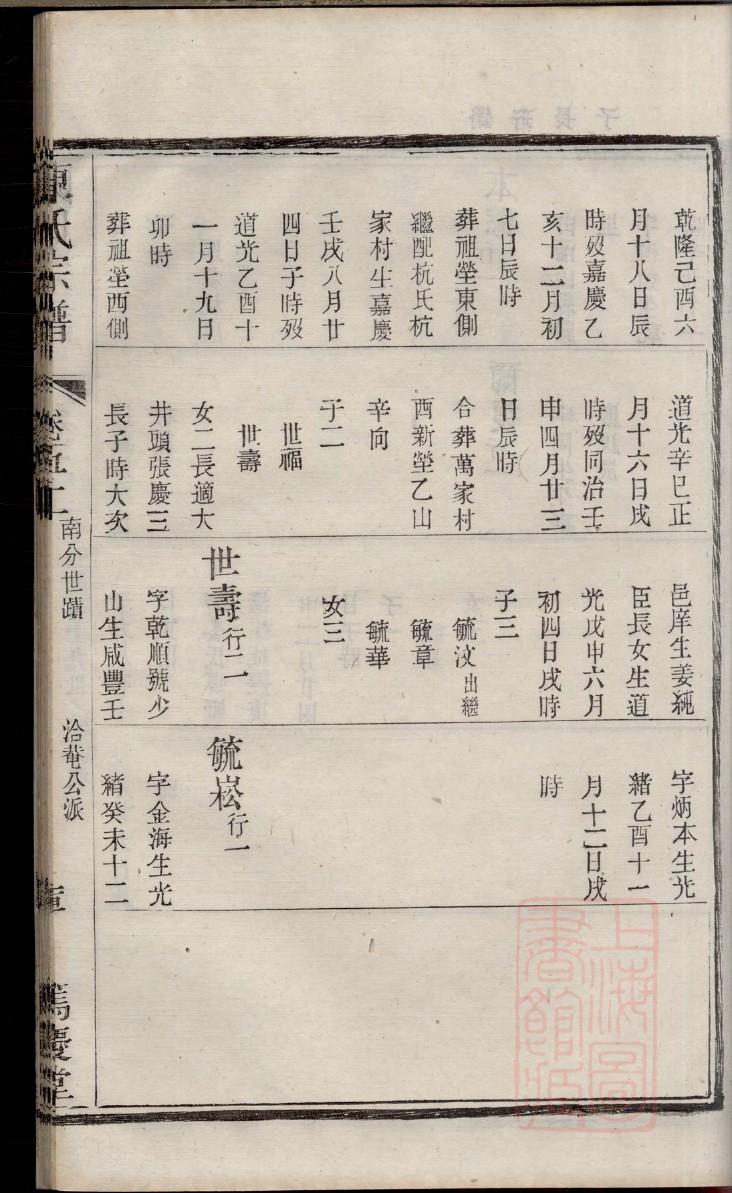 乾隆己酉六
月十八日辰
時歿嘉慶乙
亥十二月初
七日辰時
葬祖塋東側
繼配杭氏杭
家村生嘉慶
壬戌八月廿
四日子時歿
道光乙酉十
一月十九日
卯時
葬祖塋西側
道光辛巳正
月十六日戌
時歿同治壬
申四月廿三
日辰時
合葬萬家村
西新塋乙山
辛向
子二
世福
世壽
女二長適大
井頭張慶三
長子時大次
邑庠生姜純
臣長女生道
光戊申六月
初四日戌時
子三
毓汶出繼
毓章
毓華
女三
世壽行二
字乾順號少
山生咸豐壬
字炳本生光
緒乙酉十一
月十二日戌
時
毓崧行一
字金海生光
緒癸未十二
氏宗譜
南分世蹟
洽菴公派
篤慶堂
上海圖
書館藏